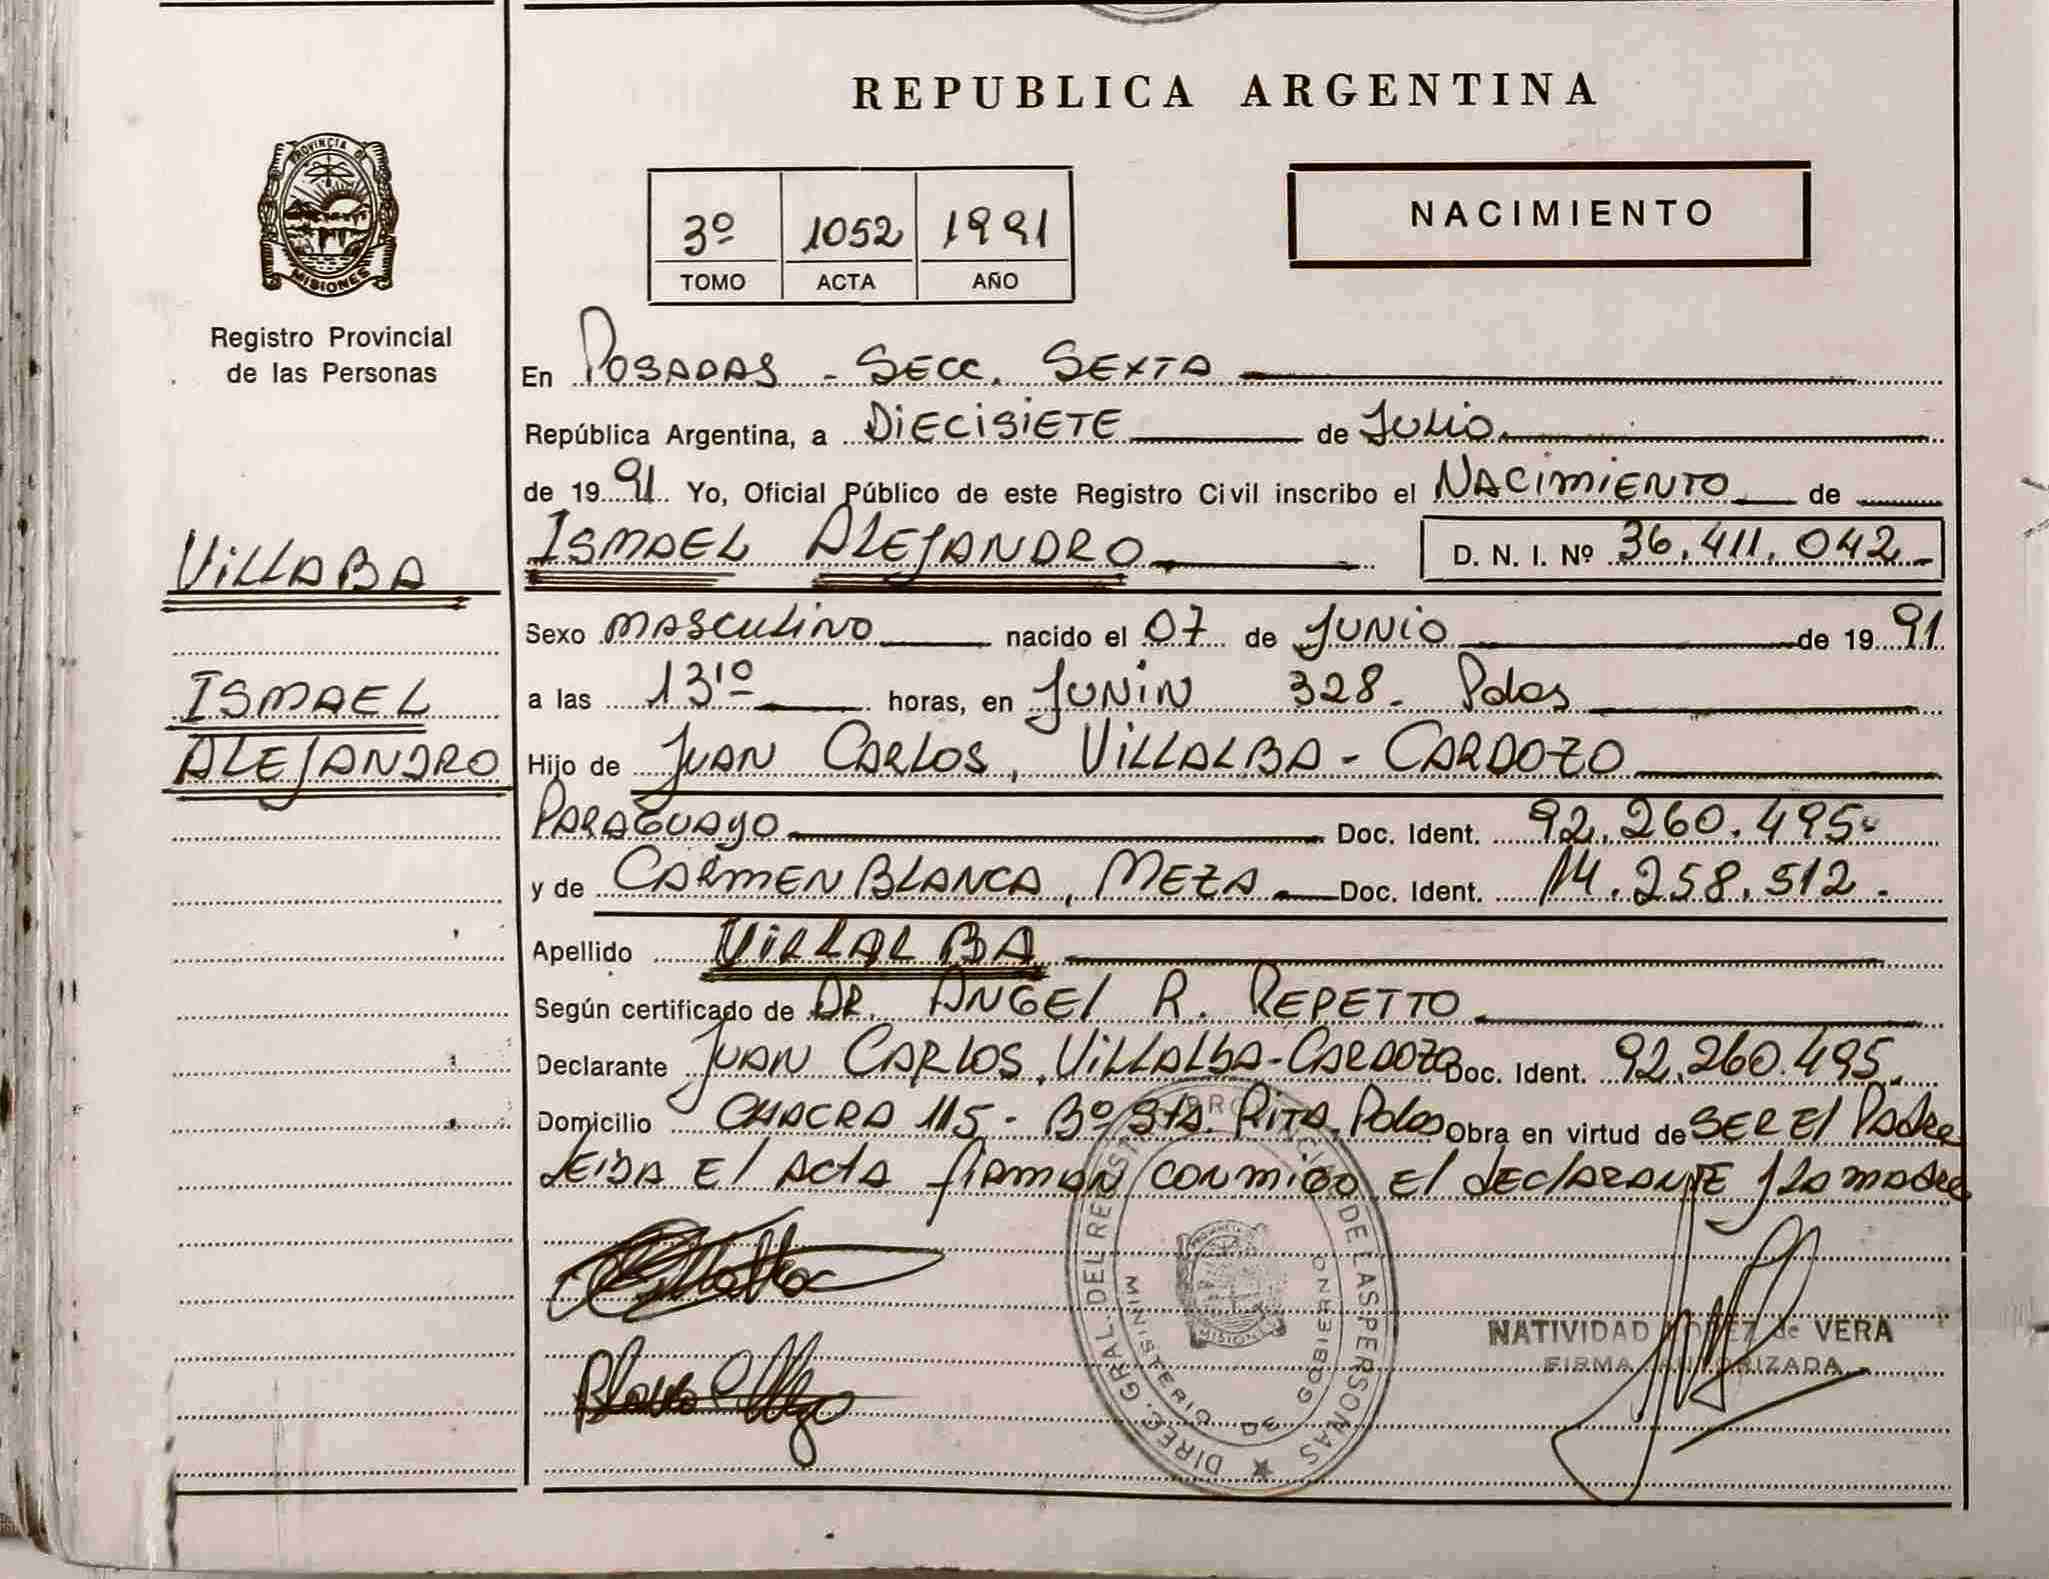 REPUBLICA ARGENTINA
PROVINCIA DE
MISIONES
Registro Provincial
de las Personas
NACIMIENTO
3º 1052 1991
TOMO ACTA AÑO
En POSADAS - SECC. SEXTA
República Argentina, a DIECISIETE de JULIO
de 1991 Yo, Oficial Público de este Registro Civil inscribo el NACIMIENTO de
VILLABA
ISMAEL
ALEJANDRO
ISMAEL ALEJANDRO D. N. I. Nº 36.411.042.-
Sexo MASCULINO nacido el 07 de JUNIO de 1991
a las 13'º horas, en JUNIN 328. Pdas
Hijo de JUAN CARLOS, VILLALBA - CARDOZO
PARAGUAYO Doc. Ident. 92.260.495-
y de CARMEN BLANCA, MEZA Doc. Ident. 14.258.512.-
Apellido VILLALBA
Según certificado de DR. ANGEL R. REPETTO
Declarante JUAN CARLOS, VILLALBA-CARDOZO Doc. Ident. 92.260.495.
Domicilio CHACRA 115 - Bº Sta. RITA. Pdas Obra en virtud de SER El PAdRE
LEIDA El ACtA fiRMAN CONMIGO El dEClARANTE y LA MAdRE
DIREC. GRAL. DEL REGISTRO PROVINCIAL DE LAS PERSONAS
MINISTERIO DE GOBIERNO
MISIONES
NATIVIDAD LOPEZ de VERA
FIRMA AUTORIZADA